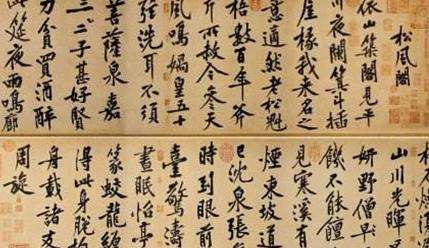 松風閣
依山築閣見平
川夜闌箕斗插
屋椽我來名之
意適然老松魁
梧數百年斧
斤所赦今參天
風鳴媧皇五十
弦洗耳不須
菩薩泉嘉
二三子甚好賢
力貧買酒醉
此筵夜雨鳴廊
石
山川光暉
妍野僧早
飢不能饘
見寒溪有
煙東坡道
已沈泉張
時到眼前
臺驚濤
晝眠怡亭
篆蛟龍
得此身脫
舟載諸友
周旋